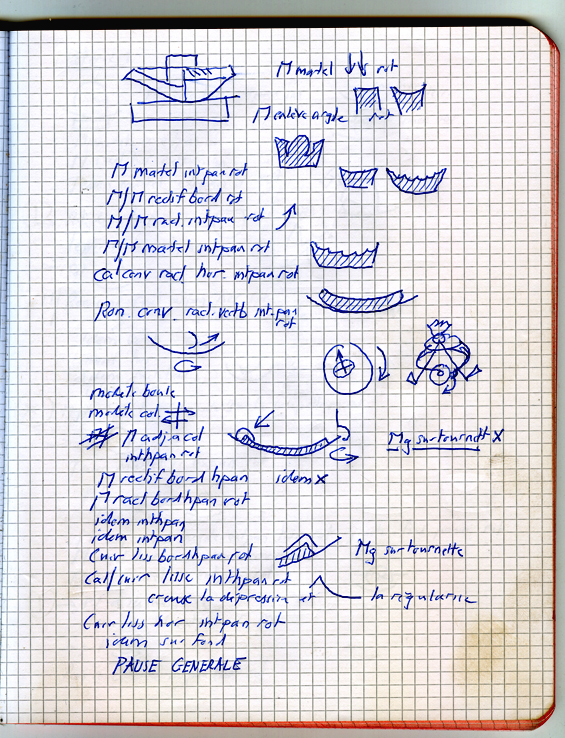 M martel rot
M enlève angle rot
M martel intpan rot
M/M rectif bord rot
M/M racl. intpan rot
M/M martel intpan rot
Cal conv racl hor. intpan rot
Ron. conv racl. vertb int.pan
rot
molete boule
molete col.
M adj à col
inthpan rot
Mg sur tournett X
M rectif bord hpan idem X
M racl bordhpan rot
idem inthpan
idem intpan
Cuir liss bordhpan rot
Mg sur tournette
Cal/cuir lisse inthpan rot
creuse la dépression et la régularise
Cuir liss hor intpan rot
idem sur fond
PAUSE GENERALE